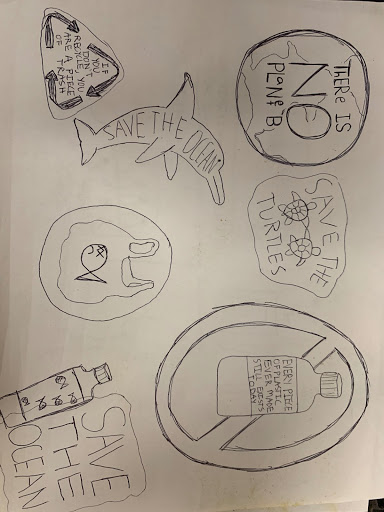 IF
YOU
DON'T
RECYCLE, YOU
ARE A PIECE
OF TRASH
SAVE THE OCEAN
THERE IS
NO
PLANET B
SAVE THE
TURTLES
EVERY PIECE
OF PLASTIC
EVER MADE
STILL EXISTS
TODAY
SAVE
THE
OCEAN